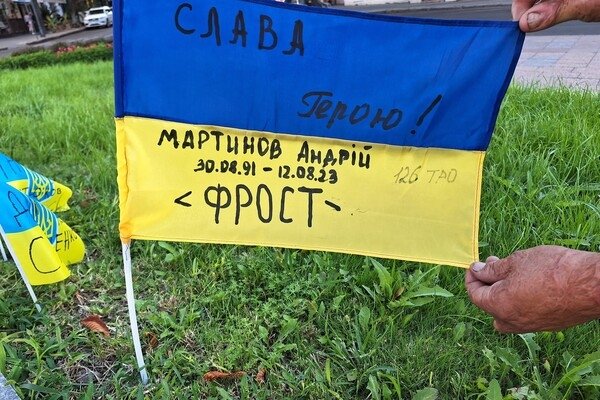 СЛАВА
Герою!
МАРТИНОВ АНДРІЙ
30.08.91 - 12.08.23
126 ТРО
<ФРОСТ>